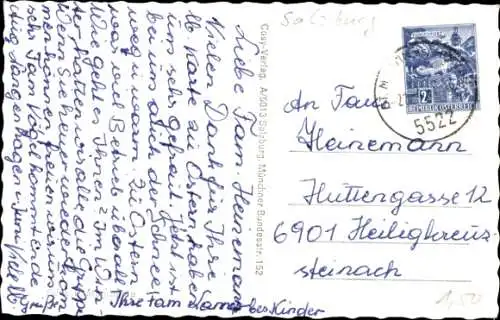 Salzburg
Liebe Fam. Heinemann
Vielen Dank für Ihre
lb. Karte zu Ostern, haben
uns sehr gefreut. Jetzt ist
bei uns auch der Schnee
weg u. warm. Zu Ostern
war voll Betrieb überall.
Wie geht es Ihnen? Im Win-
ter hatten wir alle die Grippe
Wenn Sie heuer wieder kom-
men können, freuen wir uns
sehr. Fam. Vogel kommt Ende
Cosy-Verlag, A/5013 Salzburg, Münchner Bundesstr. 152
Ihre Fam.
Kinder
An Fam.
Heinemann
Huttengasse 12
6901 Heiligkreuz-
steinach
2
REPUBLIK ÖSTERREICH
5522
1,50